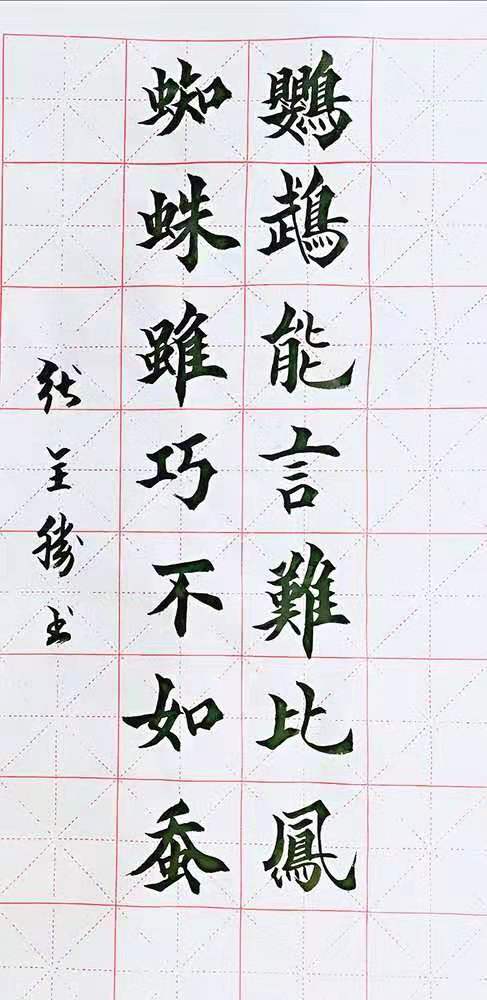 鸚鵡能言難比鳳
蜘蛛雖巧不如蚕
勝书